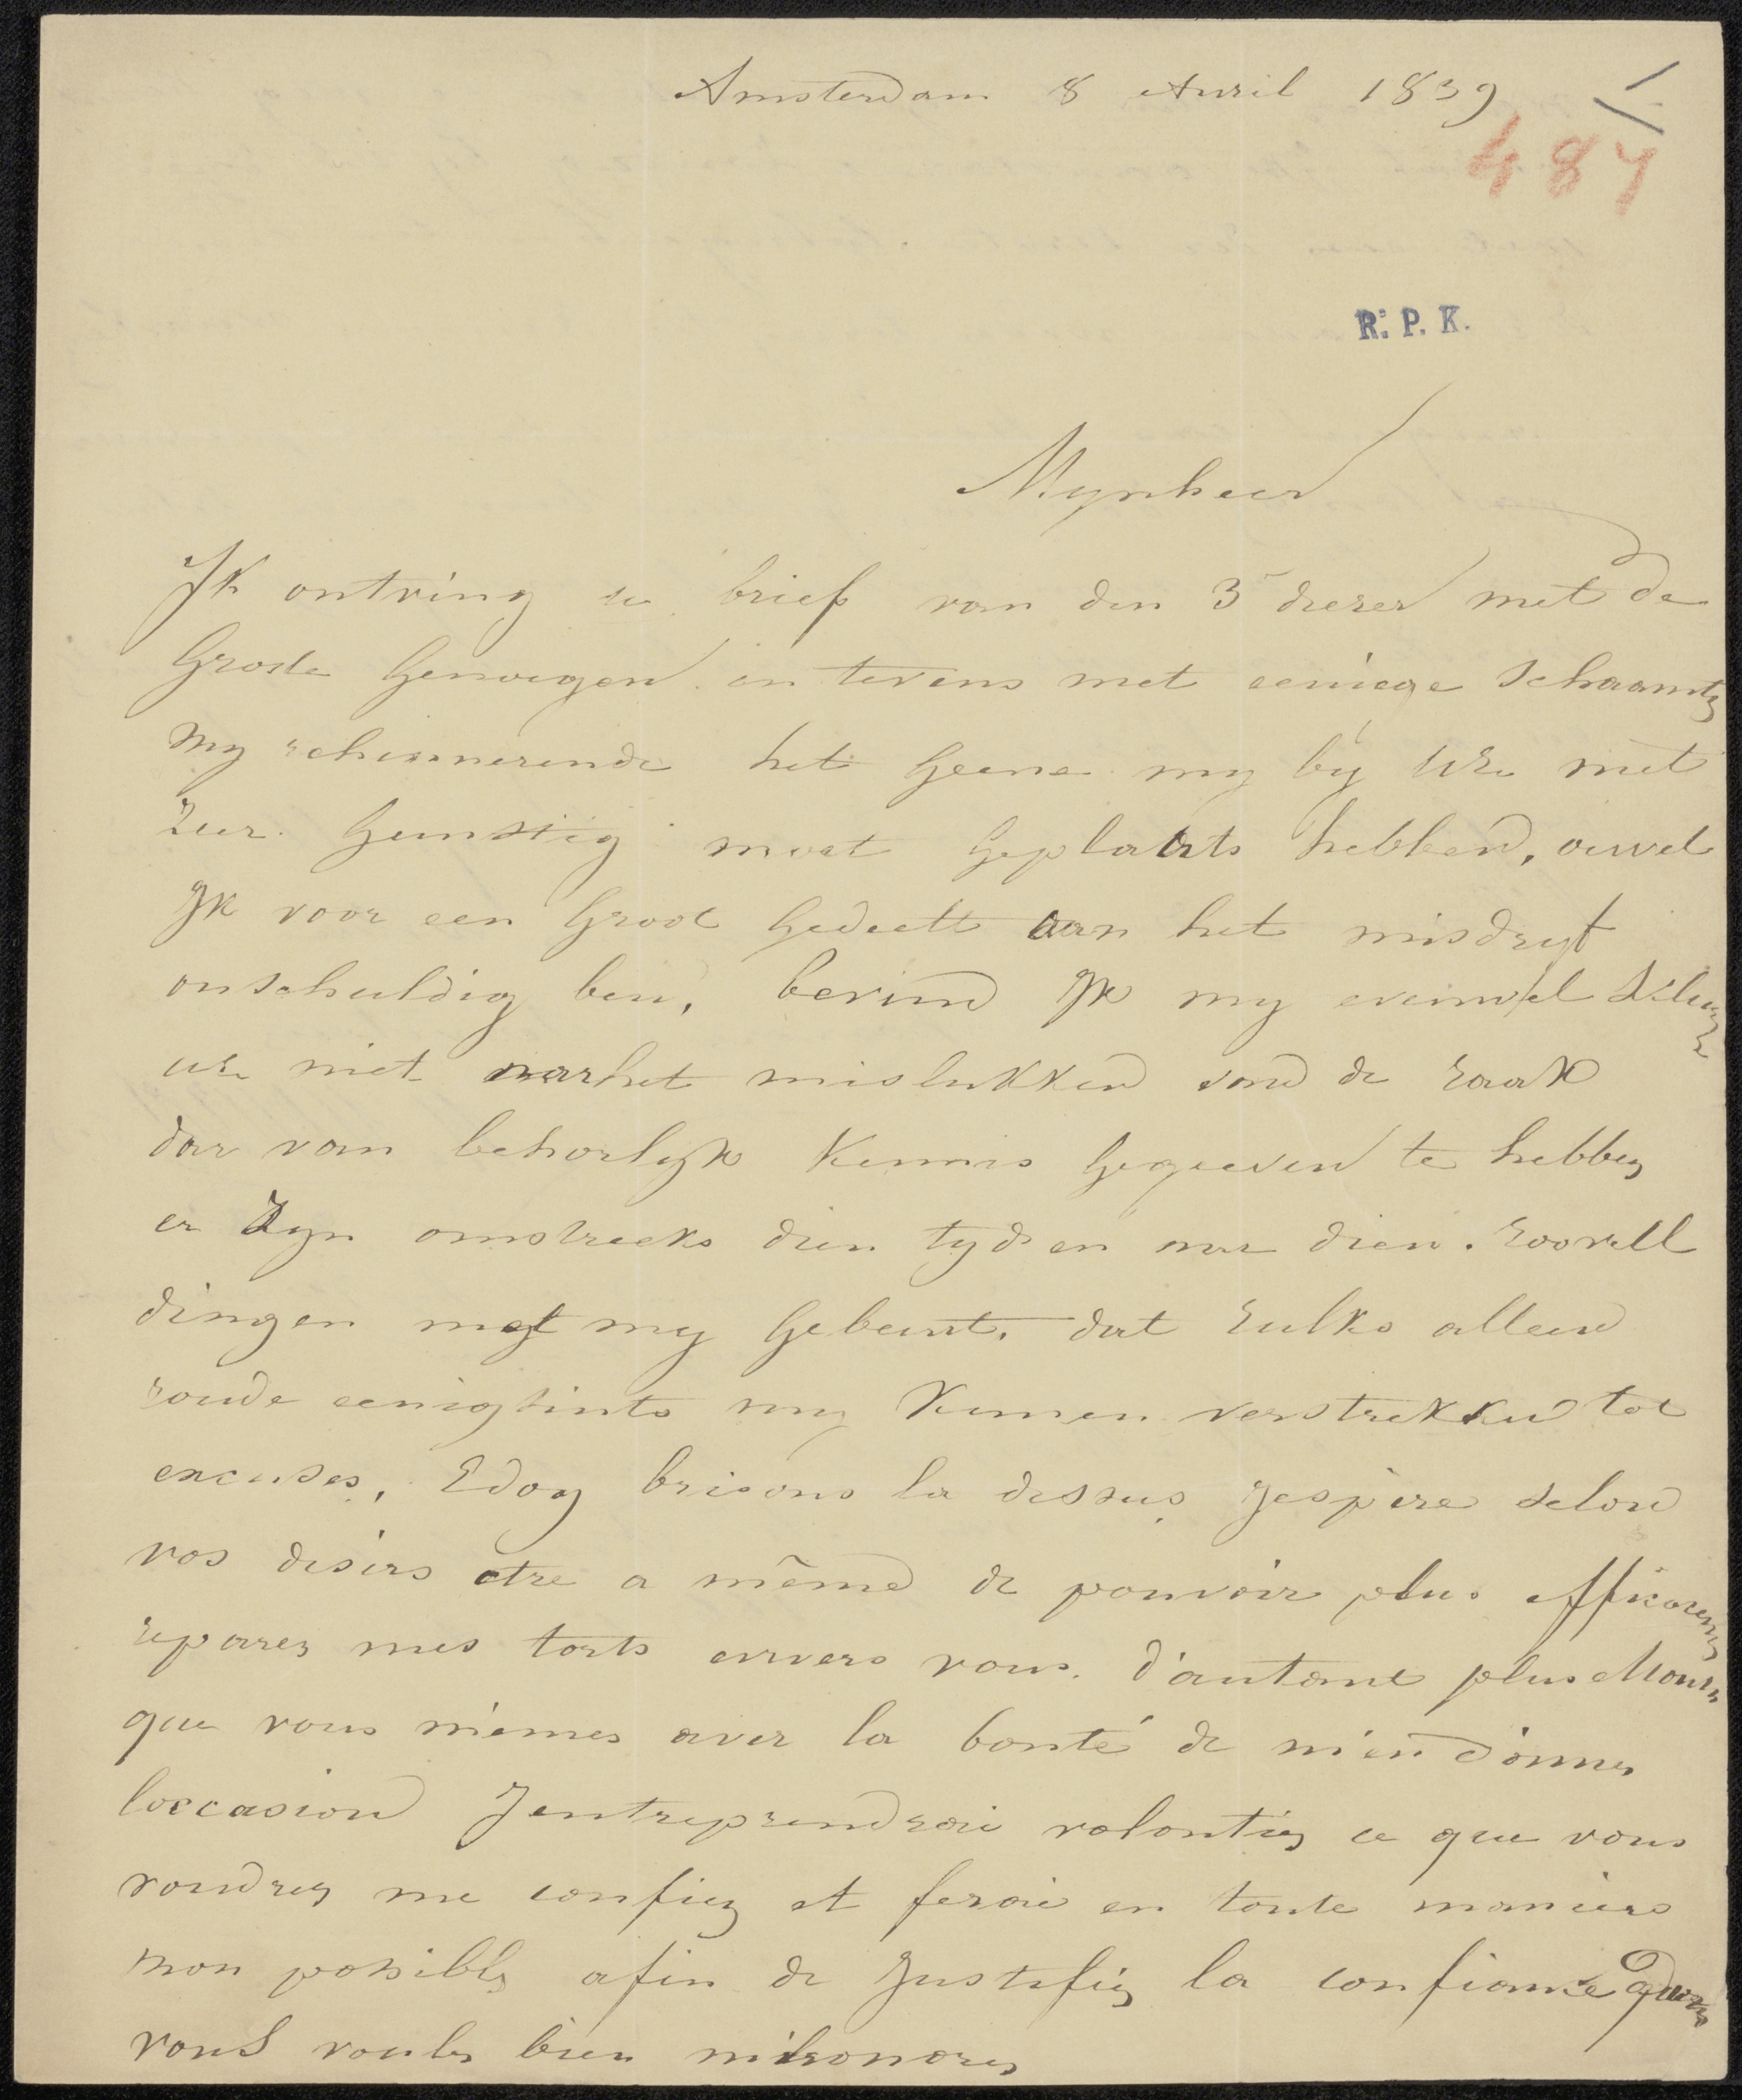 Amsterdam 8 Avril 1839
487
R. P. K.
Mynheer
Ik ontving u brief van den 3 dezer met de
Groote Genoegen en tevens met eeniege schaamte
my rehinnerende het Geene my by UEe niet
zeer Gunstig moet Geplaats hebben, oewel
Ik voor een Groot Gedeelte aan het misdryf
onschuldig ben, bevind Ik my evenwel
UEe niet naar het mislukken van de zaak
daar van behoorlyk Kennis Gegeeven te hebben
er Zyn omstreeks dien tyd en na dien. zooveell
dingen met my Gebeurt, dat zulks alleen
zoude eenigsints my Kunnen verstrekken tot
excuses, Edog brisons la dessus jespère selon
vos désirs etre a même de pouvoir plus
reparer mes torts envers vous. d'autant plus Monsr
que vous mêmes avez la bonté de m'en donner
loccasion Jentreprendrai volontiez ce que vous
voudrez me confiez et ferai en toute manière
mon possible afin de Justifiez la confiance
vous voulez bien m'honorez